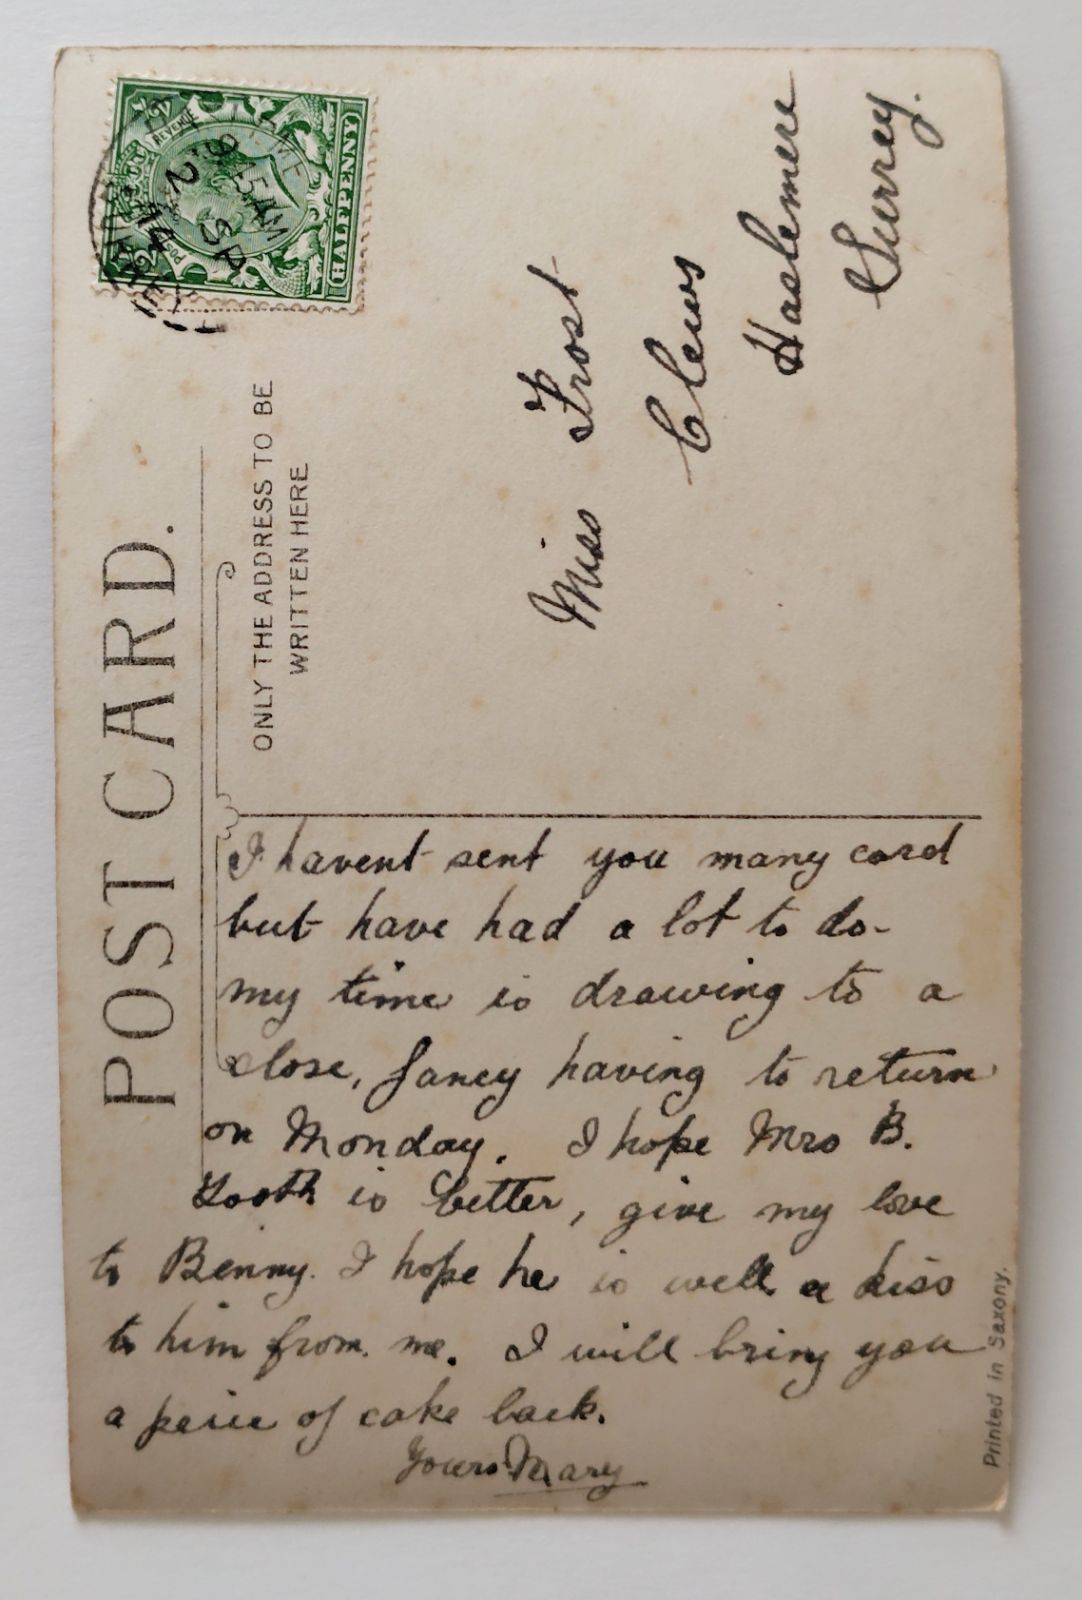 POST CARD.
ONLY THE ADDRESS TO BE
WRITTEN HERE
REVENUE
HALFPENNY
9.15 AM
2 SP
14
Miss Frost
Clews
Haslemere
Surrey.
I havent sent you many card
but have had a lot to do-
my time is drawing to a
close, fancy having to return
on Monday. I hope Mrs B.
Tooth is better, give my love
to Benny. I hope he is well a kiss
to him from me. I will bring you
a peice of cake back.
Yours Mary
Printed in Saxony.